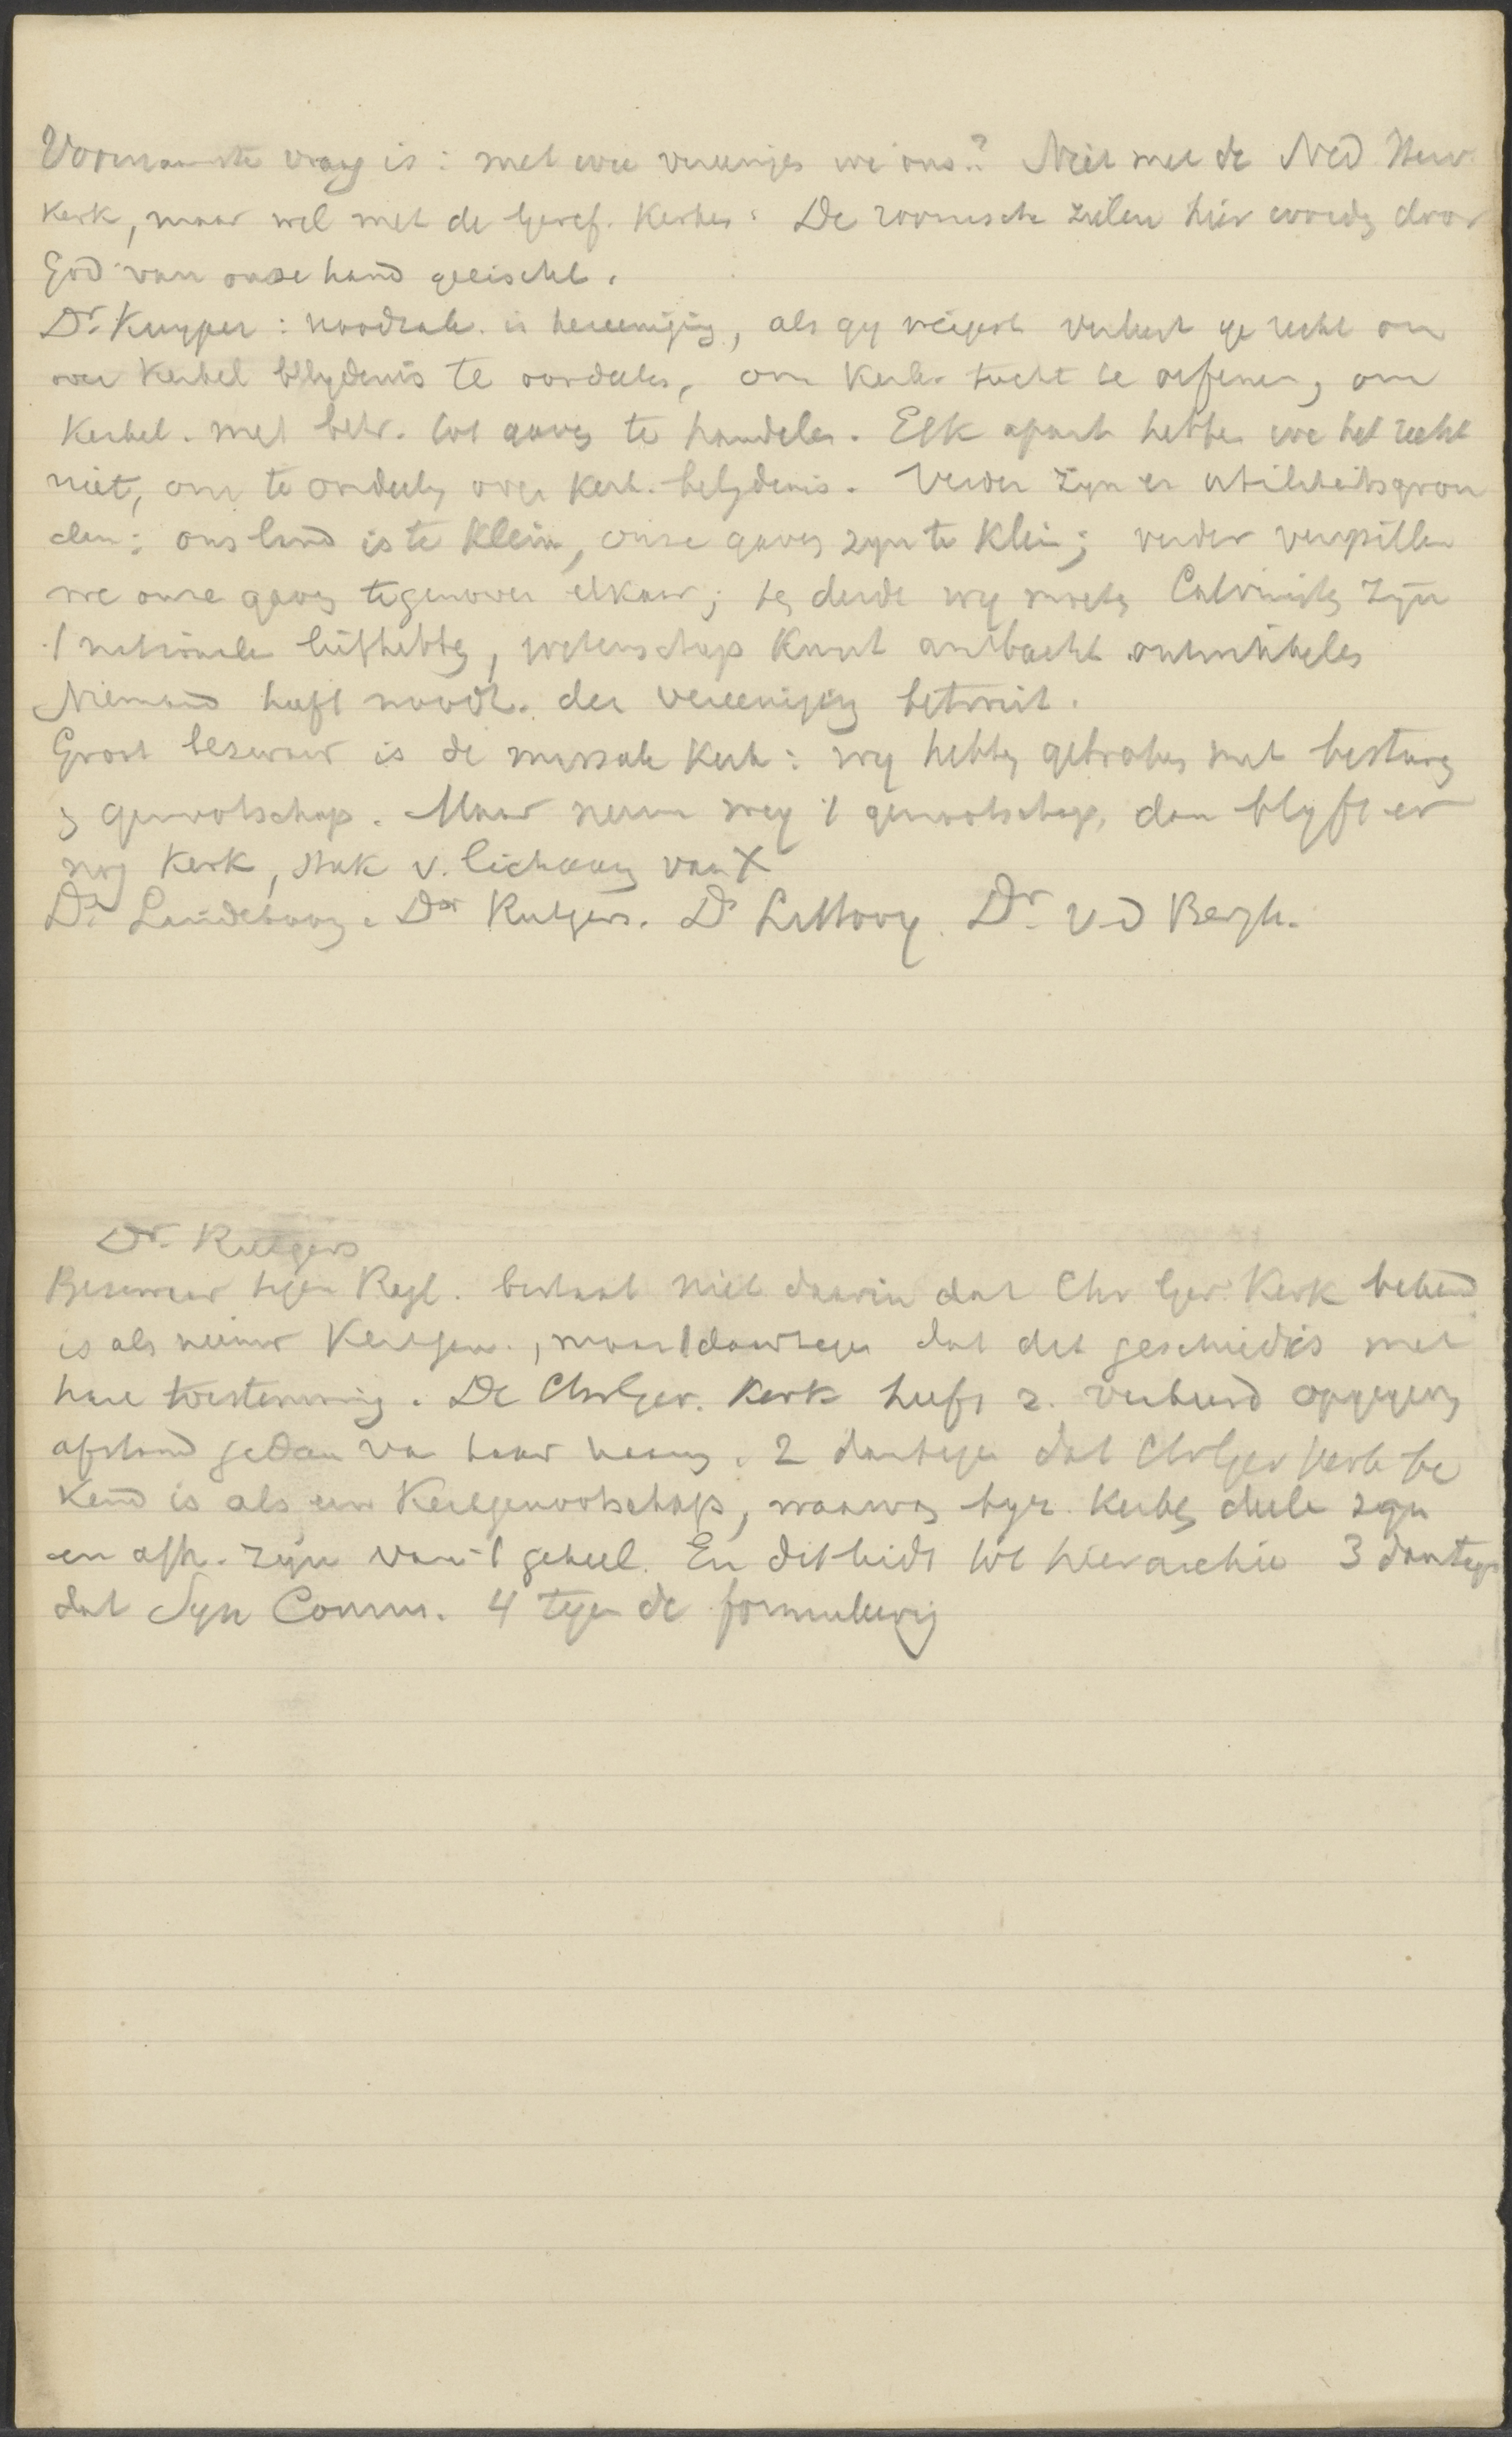 Voornaamste vraag is: met wie vereenigen we ons? Niet met de Ned Herv.
Kerk, maar wel met de Geref. Kerken. De roomsche zielen hier worden door
God van onze hand geeischt.
Dr. Kuyper: noodzak. is hereeniging, als gy weigert verbeurt ge recht om
over Kerkel belydenis te oordeelen, om Kerk. tucht te oefenen, om
Kerkel. met betr. tot gaven te handelen. Elk apart hebben we het recht
niet, om te oordeelen over Kerk. belydenis. Verder zyn er utiliteitsgron
den: ons land is te klein, onze gaven zyn te klein; verder verspillen
we onze gaven tegenover elkaar; ten derde wy moeten Calvinisten zyn
't nationale liefhebben, wetenschap Kunst ambacht ontwikkelen
Niemand heeft noodz. der vereeniging betwist.
Groot bezwaar is de Kerk: wy hebben gebroken met bestuur
en genootschap. Maar neem weg 't genootschap, dan blyft er
nog Kerk, stuk v. lichaam van X
Ds. Lindeboom. Dr Rutgers. Ds Littooy. Dr. v-d Bergh.
Dr. Rutgers
Bezwaar tegen Regl. bestaat niet daarin dat Chr Ger. Kerk bekend
is als nieuw Kerkgen., maar 1 daartegen dat dit geschied is met
hare toestemming. De Chr Ger. Kerk heeft z. verband opgegeven
afstand gedaan van haar naam. 2 daartegen dat Chr Ger Kerk be
kend is als een Kerkgenootschap, waarvan byz. Kerken deelen zyn
en afh. zyn van 't geheel. En dit leidt tot hierarchie 3 daartegen
dat Syn Comm. 4 tegen de formuleering